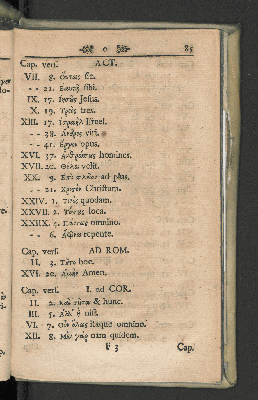 o 85
Cap. vers. ACT.
VII. 8. ὅυτως sic.
-- 21. Ἑαυτῇ sibi.
IX. 17. Ἰησῦς Jesus.
X. 19. Τρεῖς tres.
XIII. 17. Ἰσραὴλ Israel.
-- 38. Ἄνδρες viri.
-- 41. Ἔργον opus.
XVI. 37. Ἀνθρώπυς homines.
XVII. 20. Θέλει velit.
XX. 9. Ἐπὶ πλεῖον ad plus.
-- 21. Χριστὸν Christum.
XXIV. 1. quosdam.
XXVII. 2. Τόπυς loca.
XXIIX. 5. omnino.
-- 6. Ἄφνω repente.
Cap. vers. AD ROM.
II. 3. Τῦτο hoc.
XVI. 20. Ἀμὴν Amen.
Cap. vers. I. ad COR.
II. 2. Καὶ τῦτον & hunc.
III. 5. Ἀλλ' ἢ nisi.
VI. 7. Οὖν ὅλως itaque omnino.
XII. 8. Μὲν γὰρ nam quidem.
F 3 Cap.